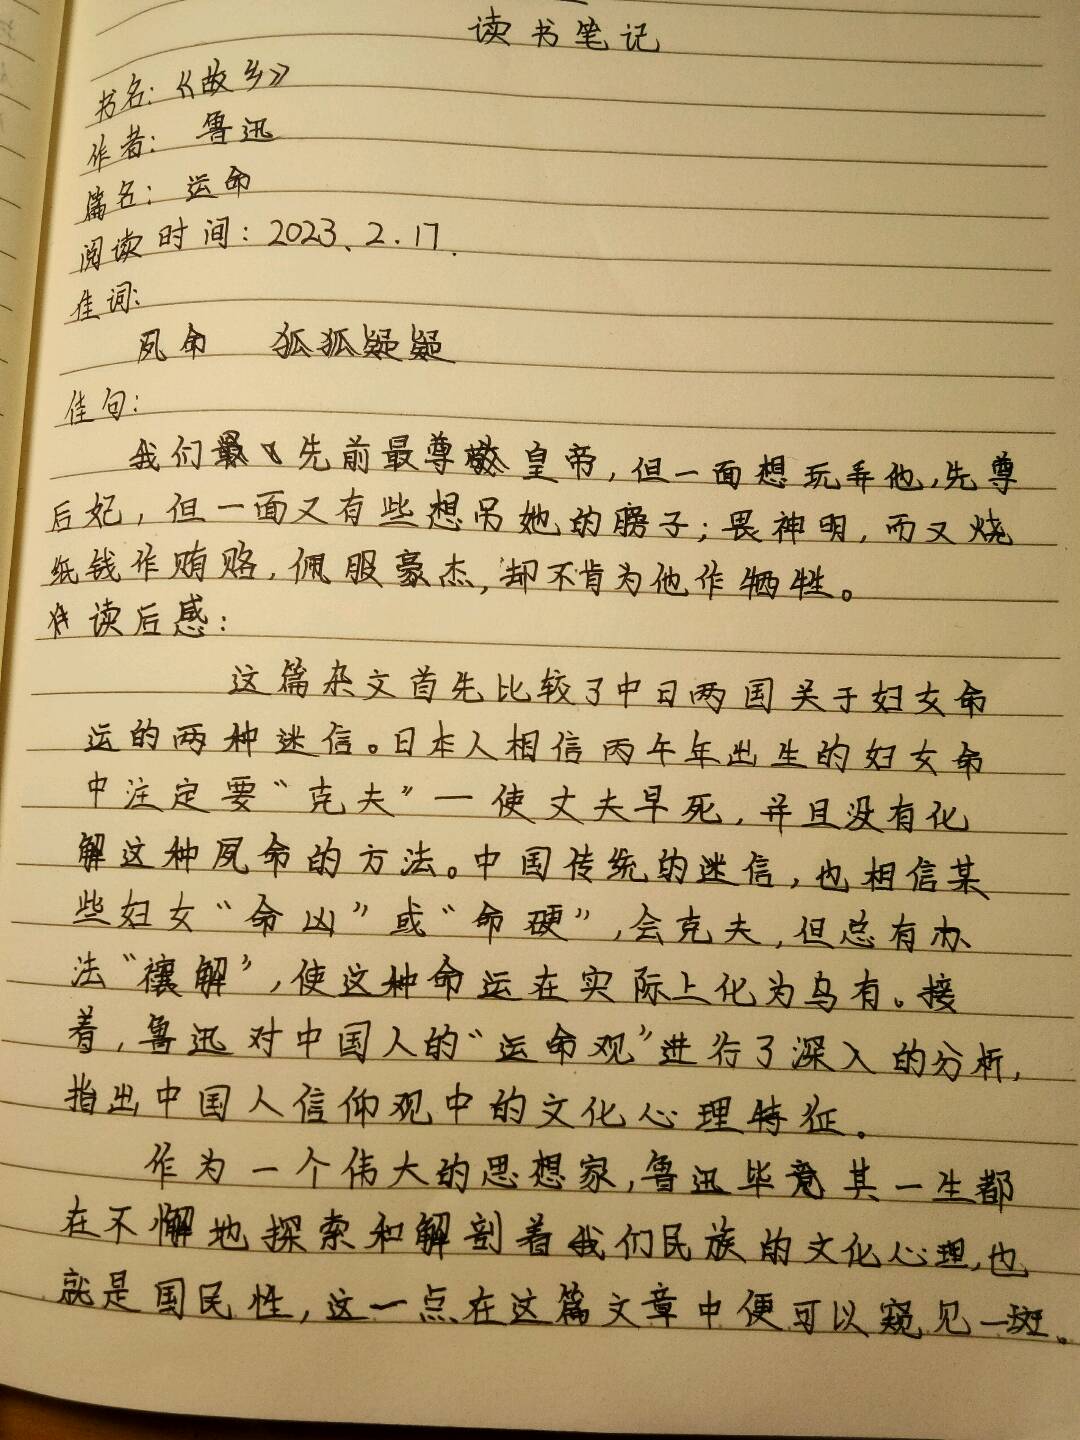 读书笔记
书名:《故乡》
作者: 鲁迅
篇名: 运命
阅读时间: 2023.2.17.
佳词:
夙命 狐狐疑疑
佳句:
我们先前最尊敬皇帝,但一面想玩弄他,先尊
后妃,但一面又有些想吊她的膀子;畏神明,而又烧
纸钱作贿赂,佩服豪杰,却不肯为他作牺牲。
读后感:
这篇杂文首先比较了中日两国关于妇女命
运的两种迷信。日本人相信丙午年出生的妇女命
中注定要“克夫”—使丈夫早死,并且没有化
解这种夙命的方法。中国传统的迷信,也相信某
些妇女“命凶”或“命硬”,会克夫,但总有办
法“禳解”,使这种命运在实际上化为乌有。接
着,鲁迅对中国人的“运命观”进行了深入的分析,
指出中国人信仰观中的文化心理特征。
作为一个伟大的思想家,鲁迅毕竟其一生都
在不懈地探索和解剖着我们民族的文化心理,也
就是国民性,这一点在这篇文章中便可以窥见一斑。